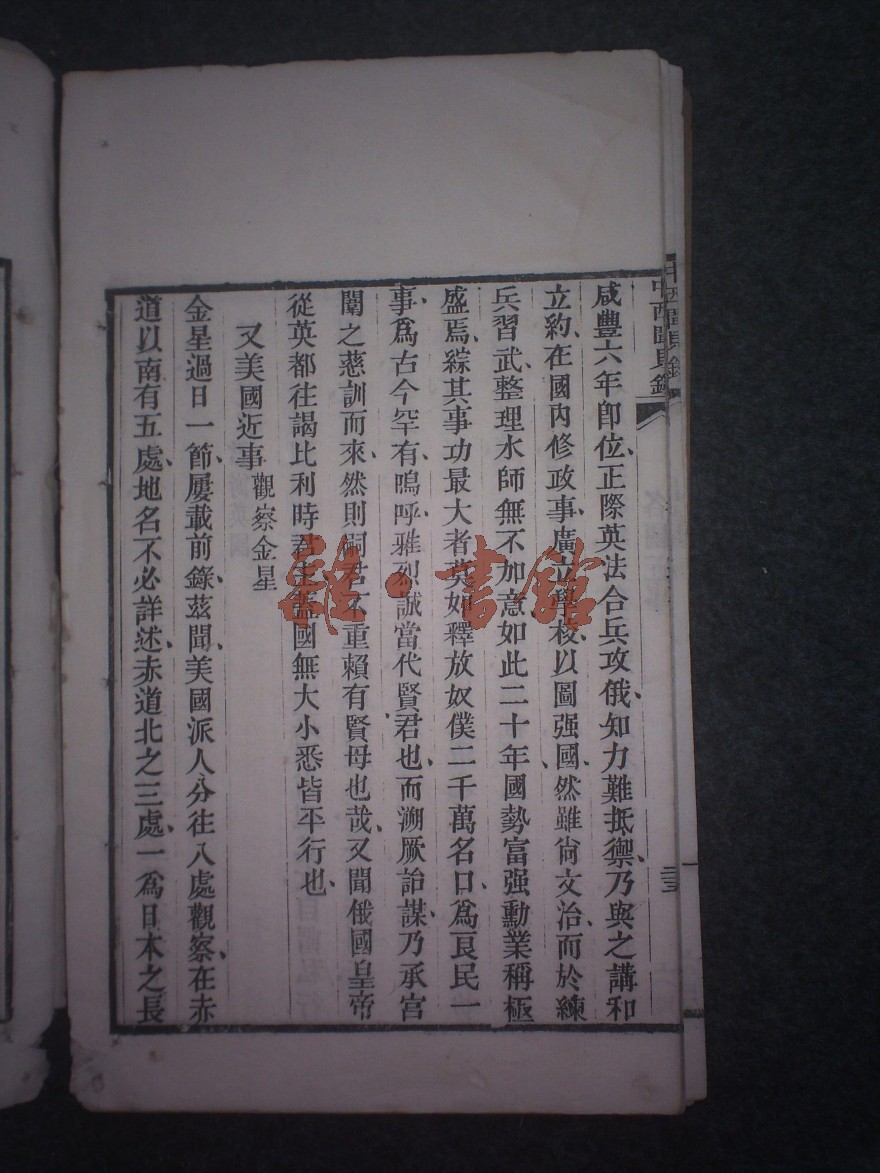 中西聞見錄
咸豐六年卽位、正際英法合兵攻俄、知力難抵禦、乃與之講和
立約、在國內修政事、廣立學校、以圖强國、然雖尙文治、而於練
兵習武、整理水師、無不加意、如此二十年、國勢富强、勳業稱極
盛焉、綜其事功最大者、莫如釋放奴僕二千萬名口、爲良民一
事、爲古今罕有、嗚呼、雅烈誠當代賢君也、而溯厥詒謀、乃承宮
闈之慈訓而來、然則嗣君不重賴有賢母也哉、又聞俄國皇帝
從英都往謁比利時君主、蓋國無大小、悉皆平行也、
又美國近事 觀察金星
金星過日一節、屢載前錄、茲聞、美國派人分往八處觀察、在赤
道以南有五處、地名不必詳述、赤道北之三處、一爲日本之長
雜·書館